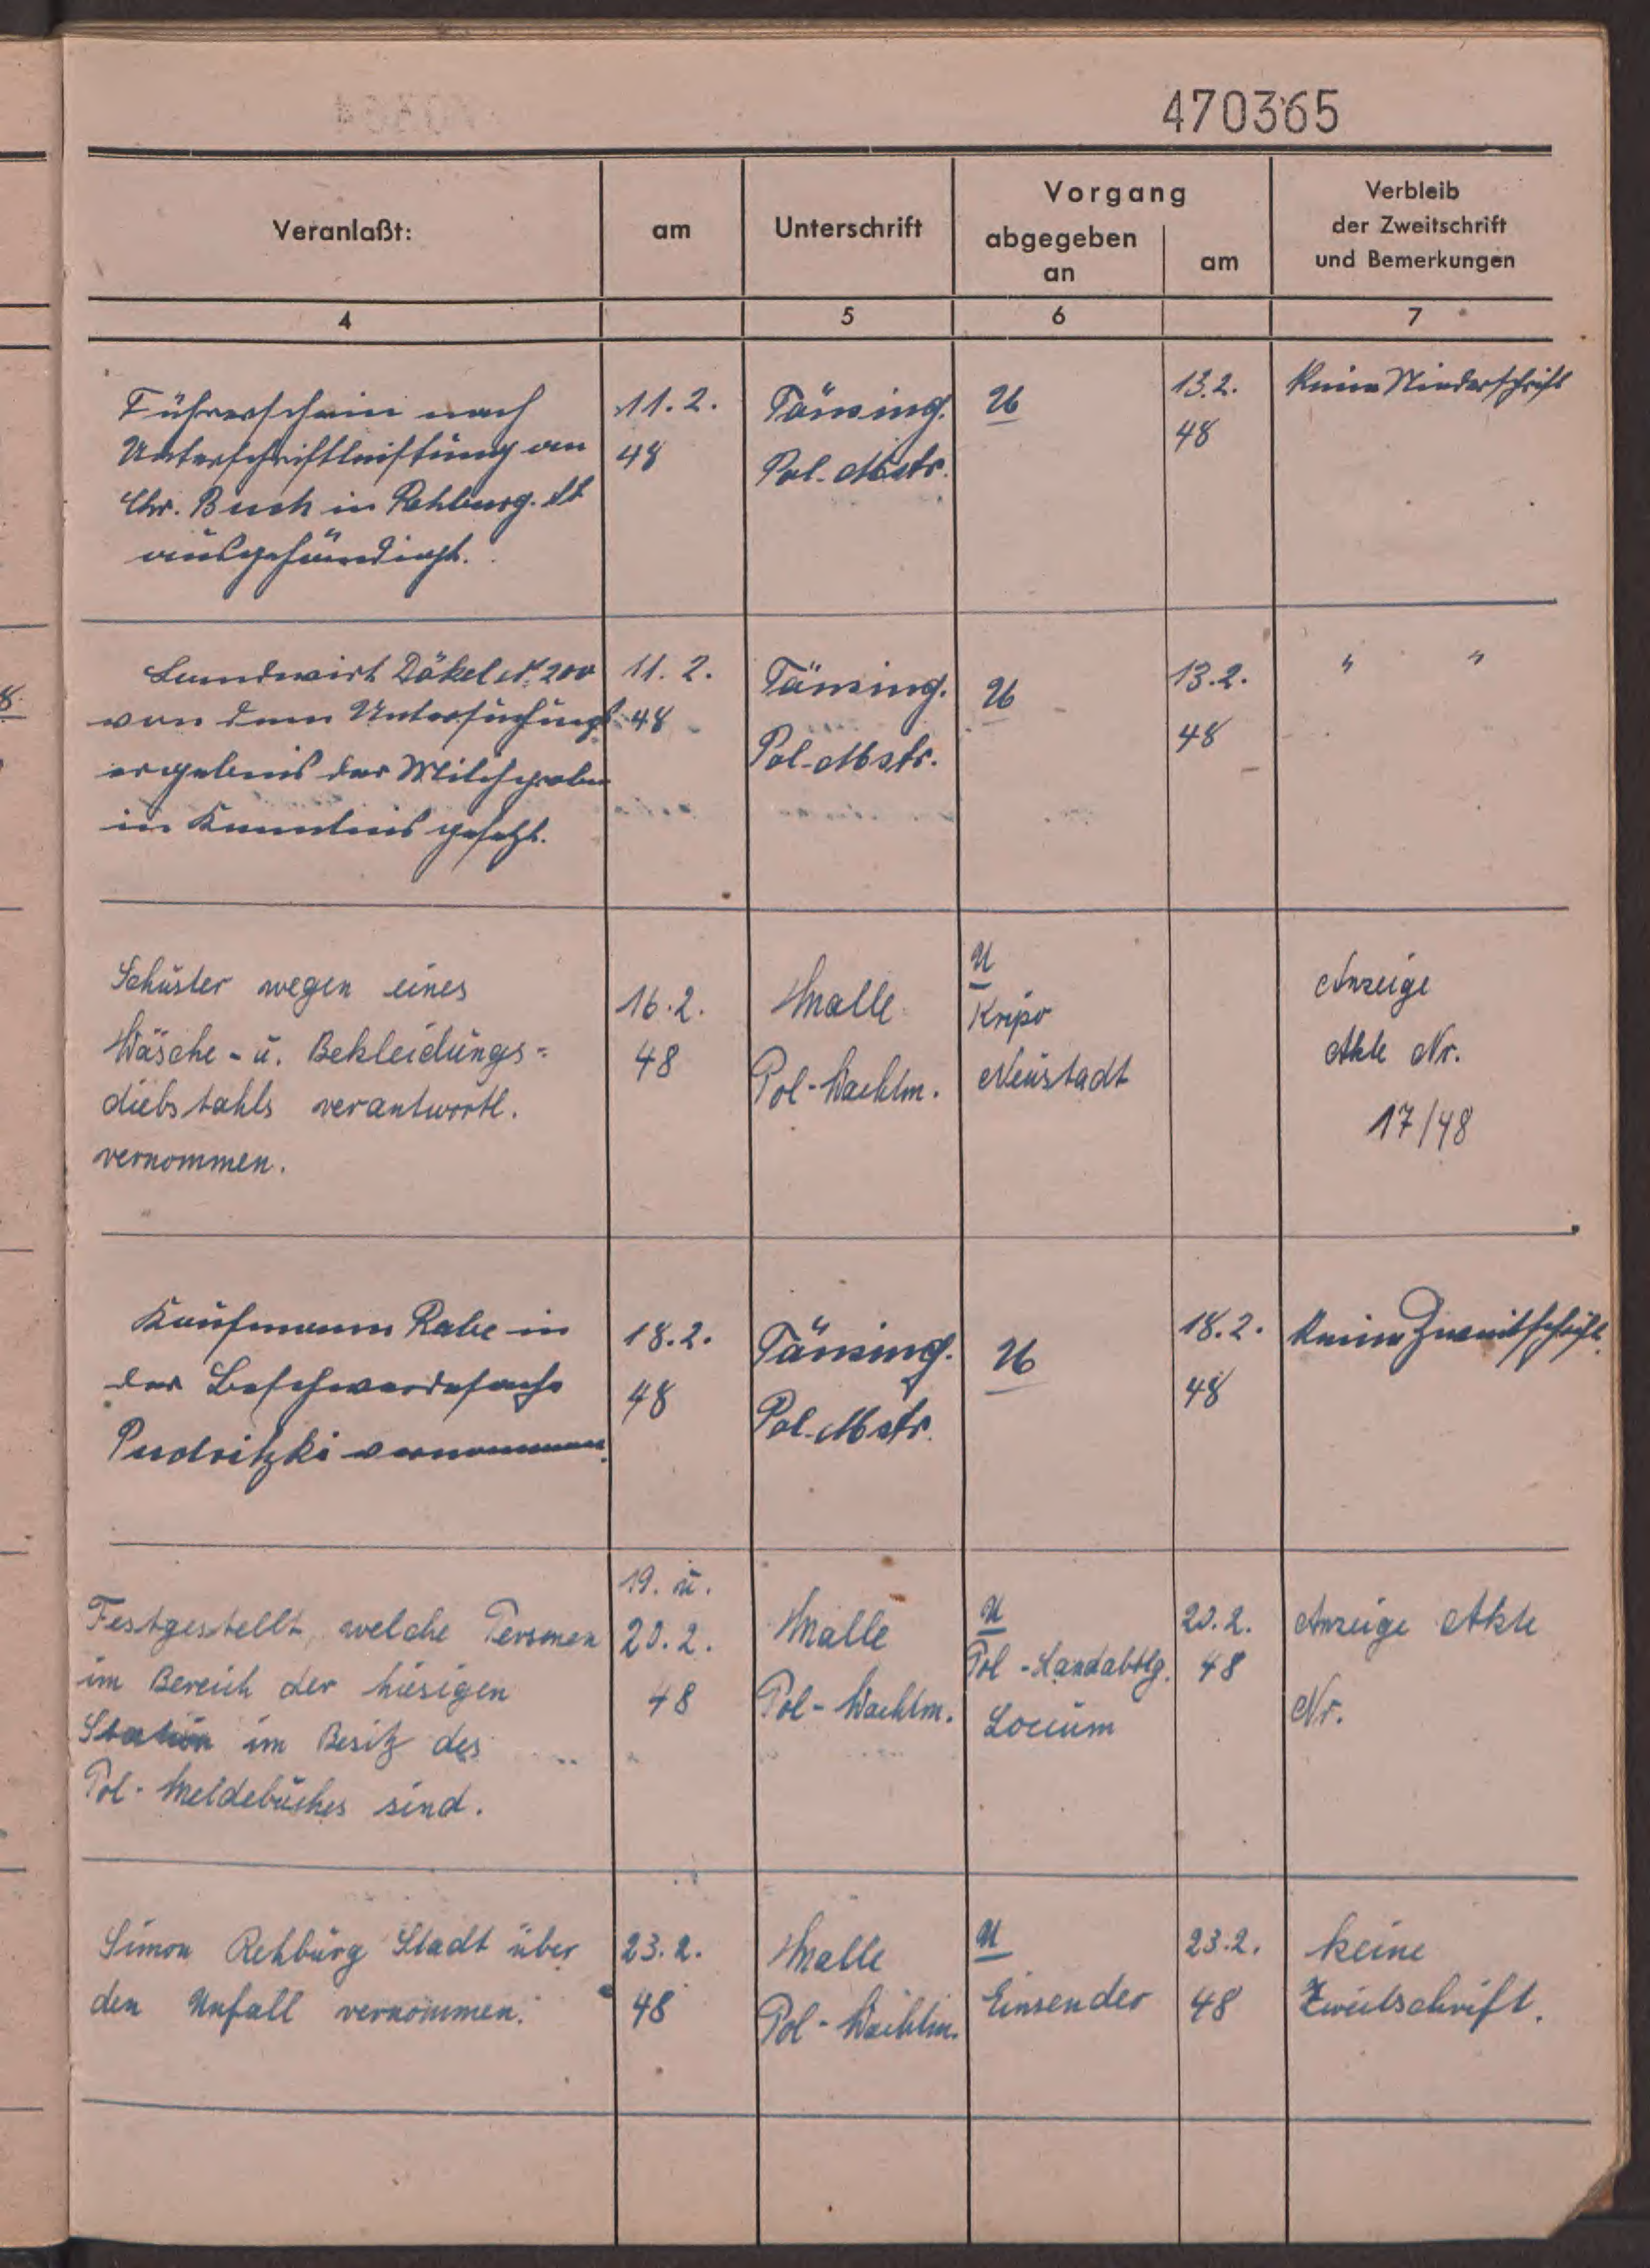 470365
Veranlaßt:
am
Unterschrift
Vorgang
abgegeben
an
am
Verbleib
der Zweitschrift
und Bemerkungen
4
5
6
7
Führerschein nach
Unterschriftleistung an
Chr. Busch in Rehburg. St
ausgehändigt.
11.2.
48
Pol. Mstr.
U
13.2.
48
Keine Niederschrift
Landwirt Däkel N. 200
von dem Untersuchungs
ergebnis der Milchprobe
in Kenntnis gesetzt.
11. 2.
48
Pol. Mstr.
U
13.2.
48
" "
Schuster wegen eines
Wäsche - u. Bekleidungs-
diebstahls verantwortl.
vernommen.
16.2.
48
Malle
Pol-Wachtm.
U
Kripo
Neustadt
Anzeige
Akte Nr.
17/48
Kaufmann Rabe in
der Beschwerdesache
Pudritzki vernommen.
18.2.
48
Pol. Mstr.
U
18.2.
48
Keine Zweitschrift.
Festgestellt, welche Personen
im Bereich der hiesigen
Station im Besitz des
Pol. Meldebuches sind.
19. u.
20.2.
48
Malle
Pol-Wachtm.
U
Pol-Landabtlg.
Loccum
20.2.
48
Anzeige Akte
Nr.
Simon Rehburg Stadt über
den Unfall vernommen.
23.2.
48
Malle
Pol-Wachtm.
U
Einsender
23.2.
48
keine
Zweitschrift.